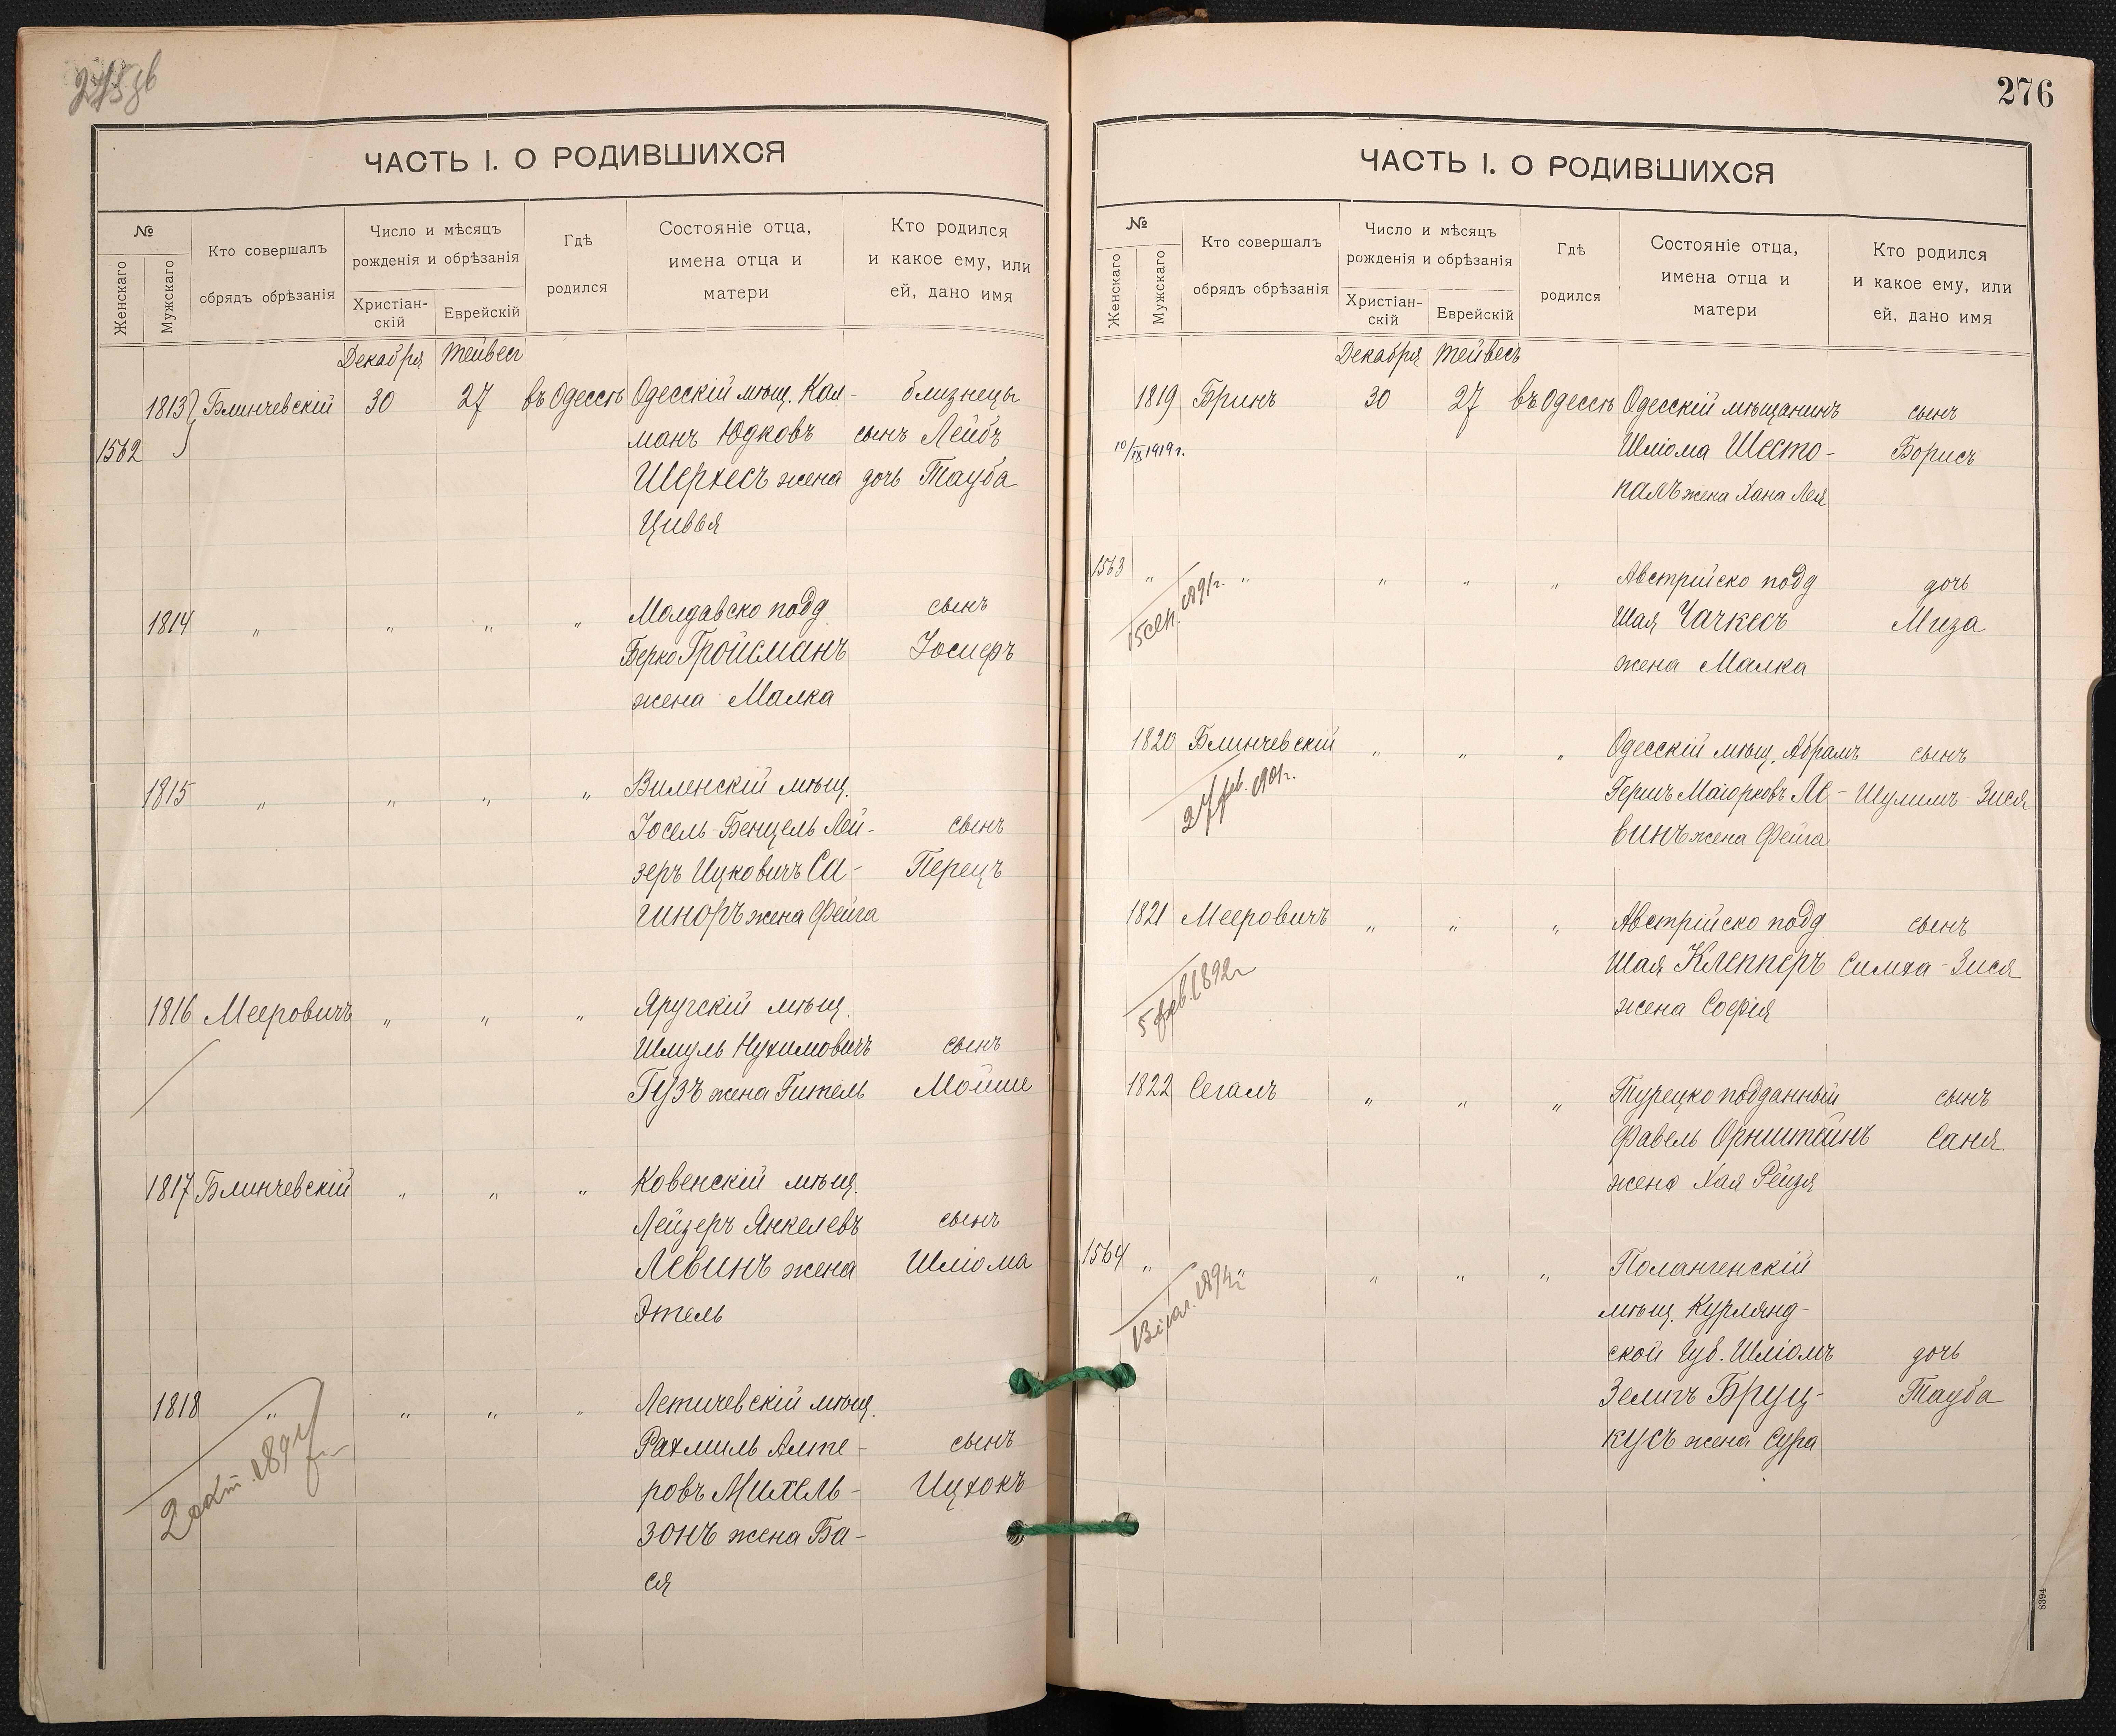 ЧАСТЬ I. О РОДИВШИХСЯ
№
Женскаго
Мужскаго
Кто совершалъ
обрядъ обрѣзанія
Число и мѣсяцъ
рожденія и обрѣзанія
Христіан-
скій
Еврейскій
Гдѣ
родился
Состояніе отца,
имена отца и
матери
Кто родился
и какое ему, или
ей, дано имя
Декабря Тейвесъ
1813 Блинчевскій 30 27 въ Одессѣ Одесскій мѣщ. Кал- близнецы
1562 манъ Юдковъ сынъ Лейбъ
Шерхесъ жена дочь Тауба
Цивья
1814 " " " " Молдавско подд. сынъ
Берко Гройсманъ Іосифъ
жена Малка
1815 " " " " Виленскій мѣщ.
Іосель-Бенцель Лей- сынъ
зеръ Ицковичъ Са- Перецъ
гиноръ жена Фейга
1816 Мееровичъ " " " Яругскій мѣщ.
Шмуль Нухимовичъ сынъ
Гузъ жена Гитель Мойше
1817 Блинчевскій " " " Ковенскій мѣщ.
Лейзеръ Янкелевъ сынъ
Левинъ жена Шліома
Этель
1818 " " " " Летичевскій мѣщ.
Рахмиль Алте- сынъ
ровъ Михель- Ицхокъ
зонъ жена Ба-
ся
276
ЧАСТЬ I. О РОДИВШИХСЯ
№
Женскаго
Мужскаго
Кто совершалъ
обрядъ обрѣзанія
Число и мѣсяцъ
рожденія и обрѣзанія
Христіан-
скій
Еврейскій
Гдѣ
родился
Состояніе отца,
имена отца и
матери
Кто родился
и какое ему, или
ей, дано имя
Декабря Тейвесъ
1819 Бринъ 30 27 въ Одессѣ Одесскій мѣщанинъ сынъ
10/IX 1919 г. Шліома Шесто- Борисъ
палъ жена Хана Лея
1563 " " " " " Австрійско подд дочь
15 сен. 1891 г. Шая Чачкесъ Миза
жена Малка
1820 Блинчевскій " " " Одесскій мѣщ. Абрамъ сынъ
27 фев. 1901 г. Гершъ Маіорковъ Ле- Шулимъ-Зися
винъ жена Фейга
1821 Мееровичъ " " " Австрійско подд сынъ
5 фев. 1892 г Шая Клепперъ Симха-Зися
жена Софія
1822 Сегалъ " " " Турецко подданный сынъ
Фавель Орнштейнъ Саня
жена Хая Рейзя
1564 " " " " " Полангенскій
мѣщ. Курлянд-
ской Губ. Шліомъ дочь
Зелигъ Бруц- Тауба
кусъ жена Сура
8394